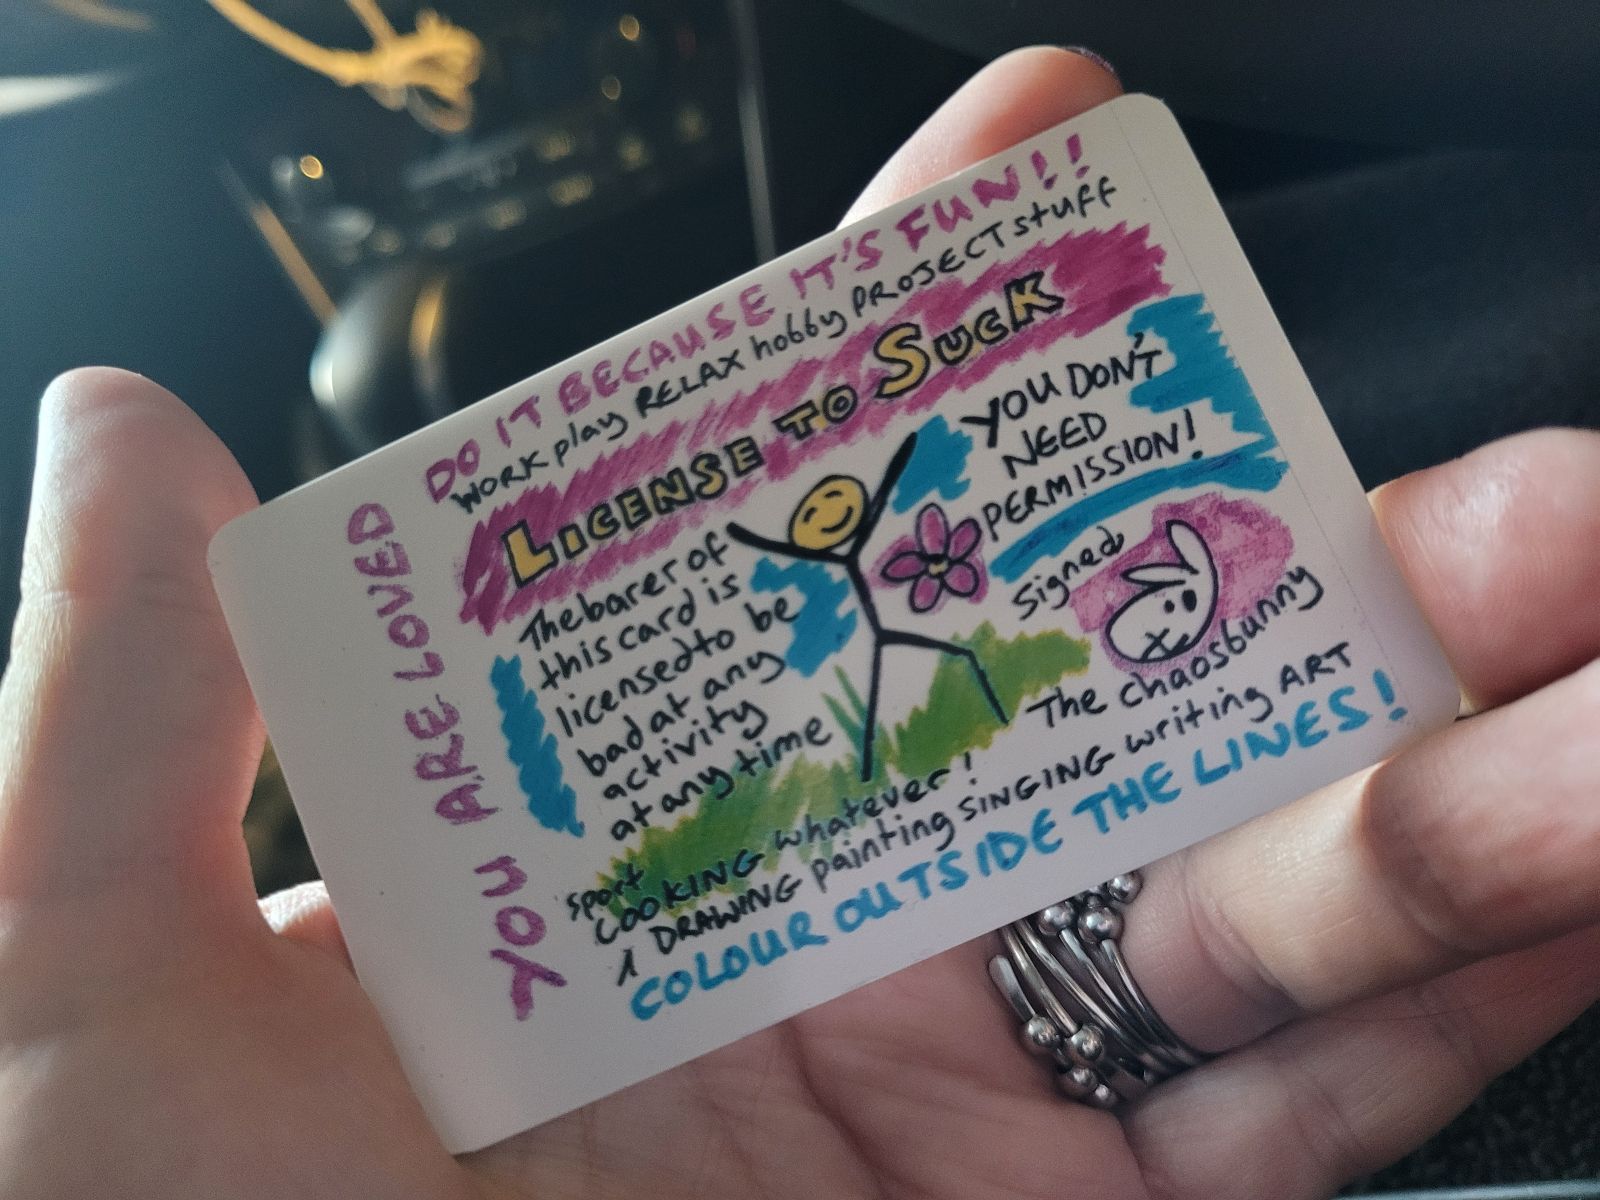 DO IT BECAUSE IT'S FUN!!
WORK play RELAX hobby PROJECT stuff
YOU ARE LOVED
LICENSE TO SUCK
The barer of
this card is
licensed to be
bad at any
activity
at any time
YOU DON'T
NEED
PERMISSION!
Signed
The chaosbunny
sport
COOKING whatever!
DRAWING painting SINGING writing ART
COLOUR OUTSIDE THE LINES!